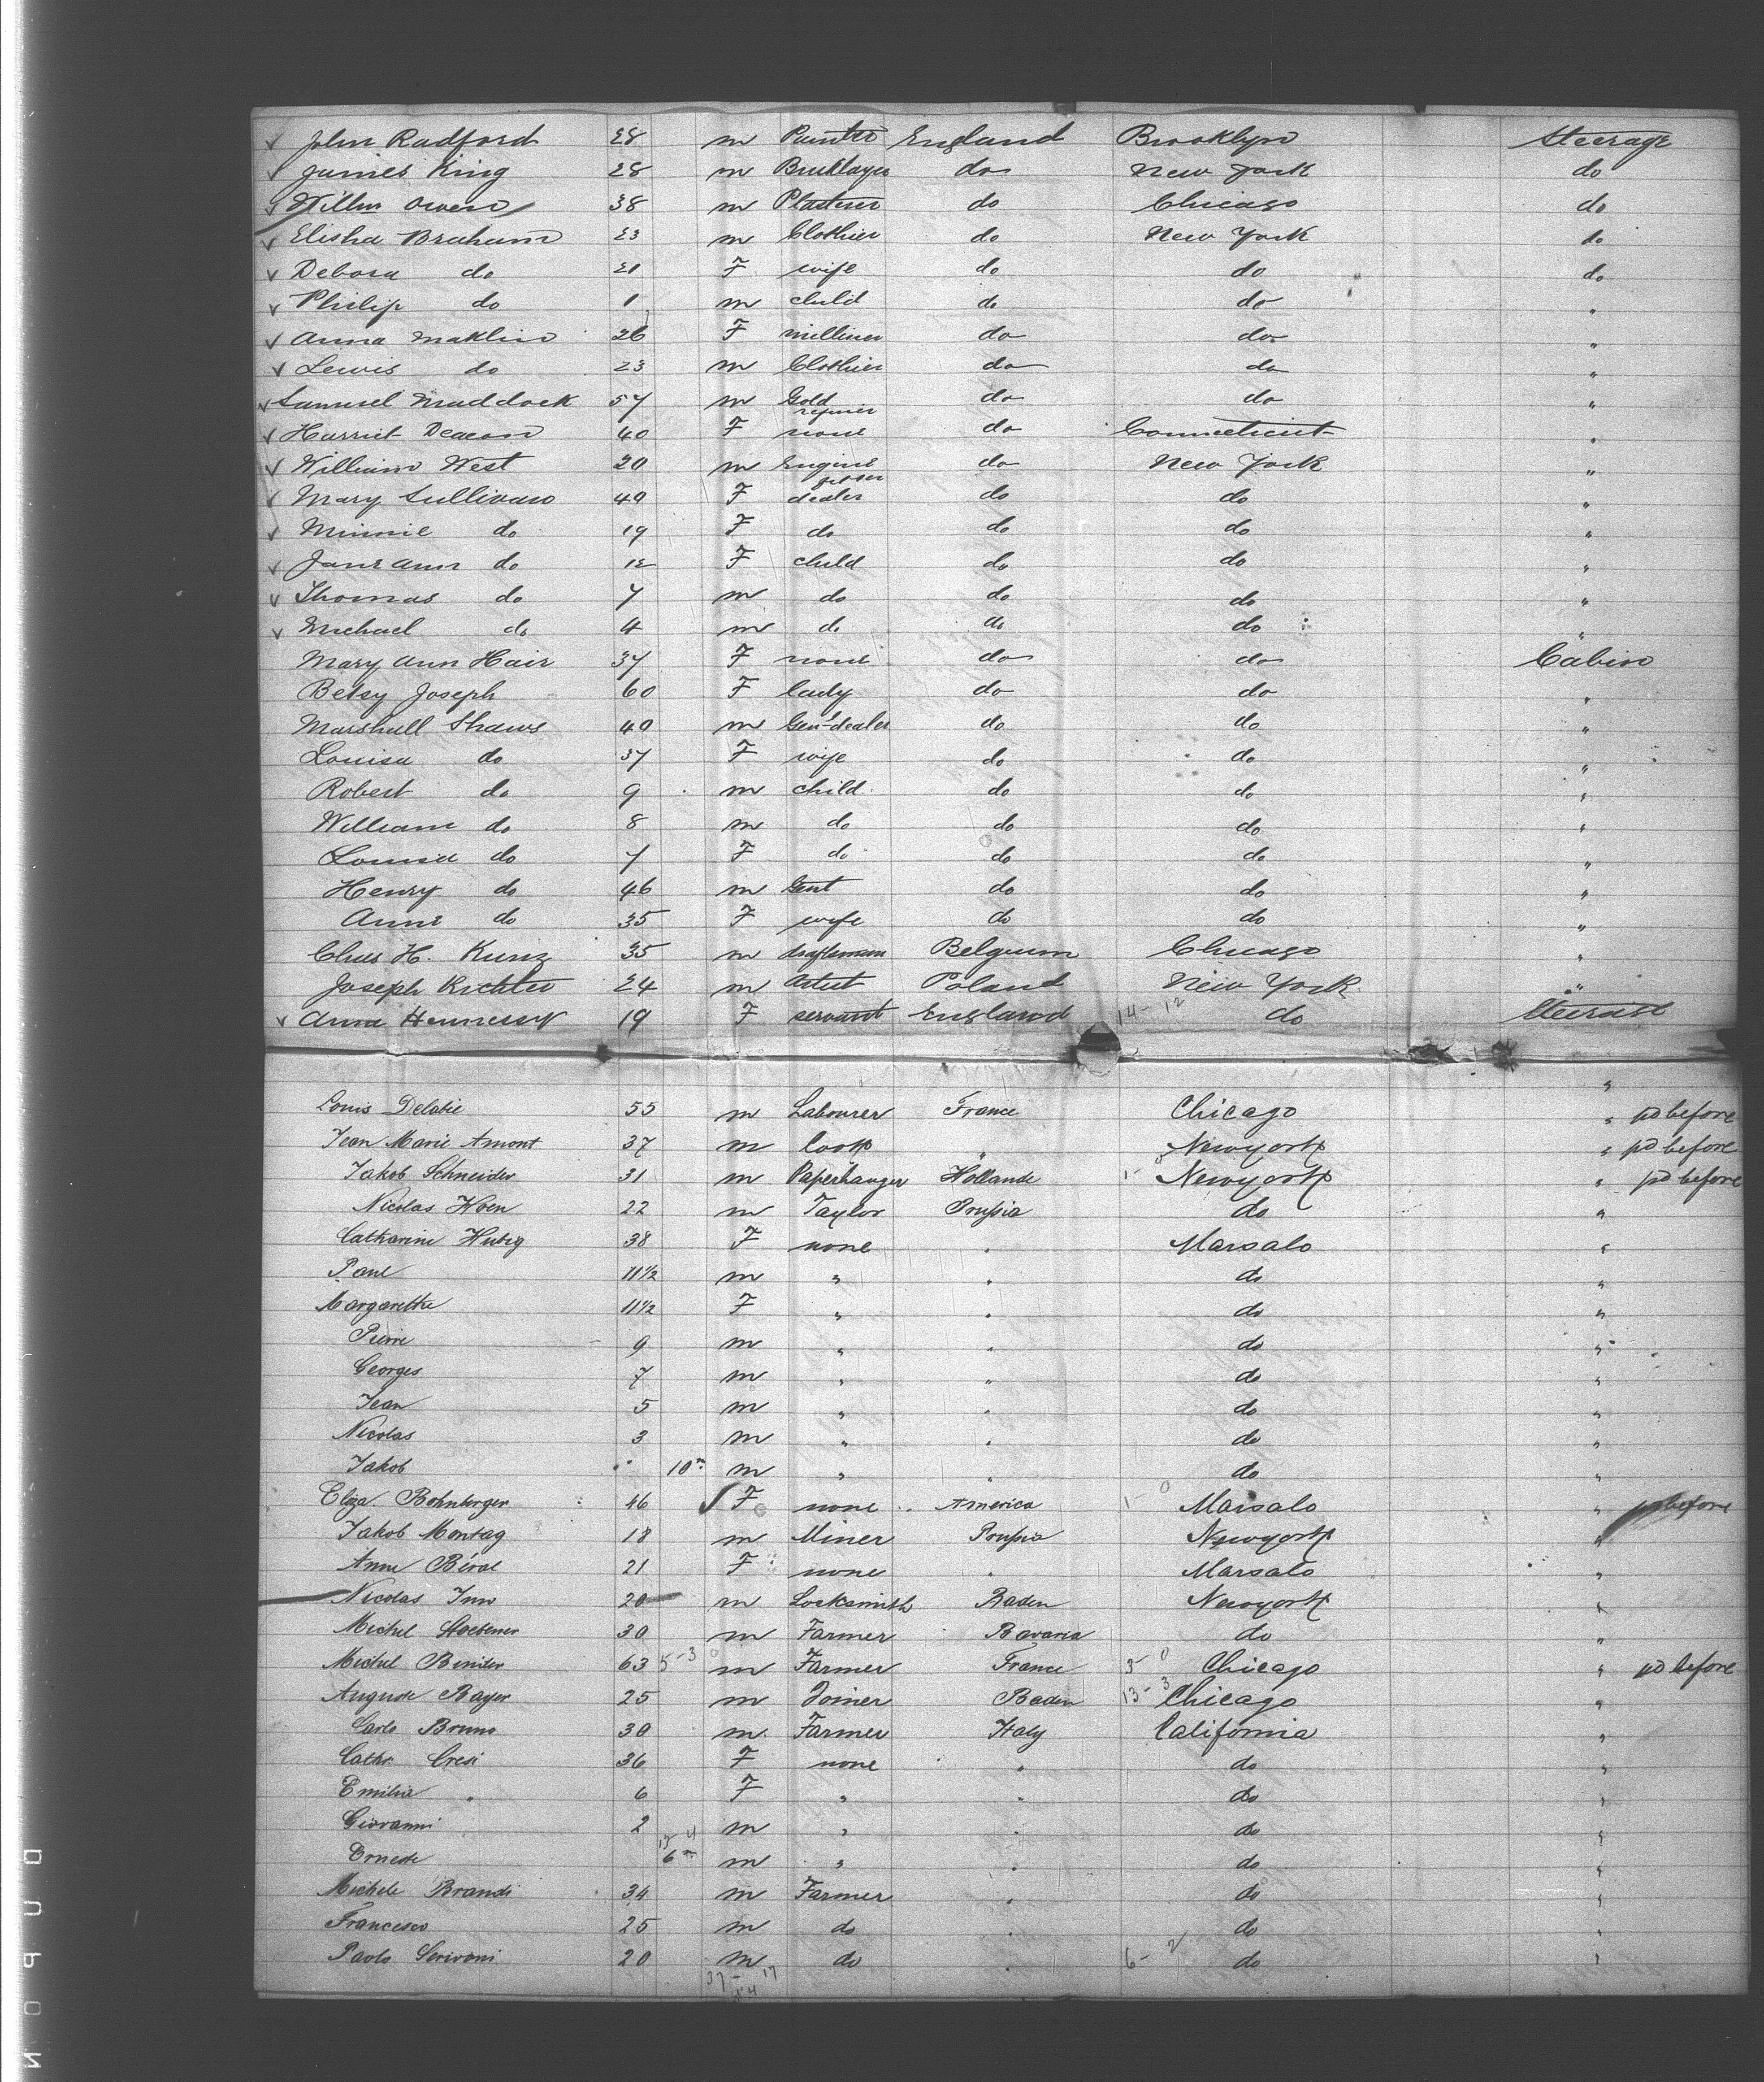 ✓ John Radford 28 m Painter England Brooklyn Steerage
✓ James King 28 m Bricklayer do New York do
✓ Willm Owens 38 m Plasterer do Chicago do
✓ Elisha Braham 23 m Clothier do New York do
✓ Debora do 21 F wife do do do
✓ Philip do 1 m child do do "
✓ Anna Maklin 26 F milliner do do "
✓ Lewis do 23 m Clothier do do "
✓ Samuel Maddock 57 m Gold refiner do do "
✓ Harriet Deacon 40 F none do Connecticut "
✓ William West 20 m Engine fitter do New York "
✓ Mary Sullivan 49 F dealer do do "
✓ Minnie do 19 F do do do "
✓ Jane Ann do 12 F child do do "
✓ Thomas do 7 m do do do "
✓ Michael do 4 m do do do "
Mary Ann Hair 37 F none do do Cabin
Betsy Joseph 60 F lady do do "
Marshall Shaws 40 m Genl dealer do do "
Louisa do 37 F wife do do "
Robert do 9 m child do do "
William do 8 m do do do "
Louisa do 7 F do do do "
Henry do 46 m Gent do do "
Anne do 35 F wife do do "
Chas H. Kunz 35 m draftsman Belgium Chicago "
Joseph Richter 24 m Artist Poland New York "
✓ Anna Hennessy 19 F servant England 14-12 do Steerage
"
Louis Delatie 55 m Labourer France Chicago " pd before
Jean Marie Amont 37 m Cook " Newyork " pd before
Jakob Schneider 31 m Paperhanger Hollande Newyork " pd before
Nicolas Hoen 22 m Taylor Prussia do "
Catharine Hubig 38 F none " Marsalo "
Paul 11½ m " " do "
Margarethe 11½ F " " do "
Pierre 9 m " " do "
Georges 7 m " " do "
Jean 5 m " " do "
Nicolas 3 m " " do "
Jakob 10m m " " do "
Eliza Bohnberger 46 F none America 1-0 Marsalo " pd before
Jakob Montag 18 m Miner Prussia Newyork "
Anne Béral 21 F none " Marsalo "
Nicolas Inn 20 m Locksmith Baden Newyork "
Michel 30 m Farmer Bavaria do "
Michel Binder 63 5-3 m Farmer France 3-0 Chicago " pd before
Auguste Bayer 25 m Joiner Baden 13-3 Chicago "
Carlo Bruno 30 m Farmer Italy California "
Cathr. Cresi 36 F none " do "
Emilia " 6 F " " do "
Giovanni 2 m " " do "
Ernesto 6m m " " do "
Michele Brandi 34 m Farmer " do "
Francesco 25 m do " do "
Paolo 20 m do " 6-2 do "
37-17